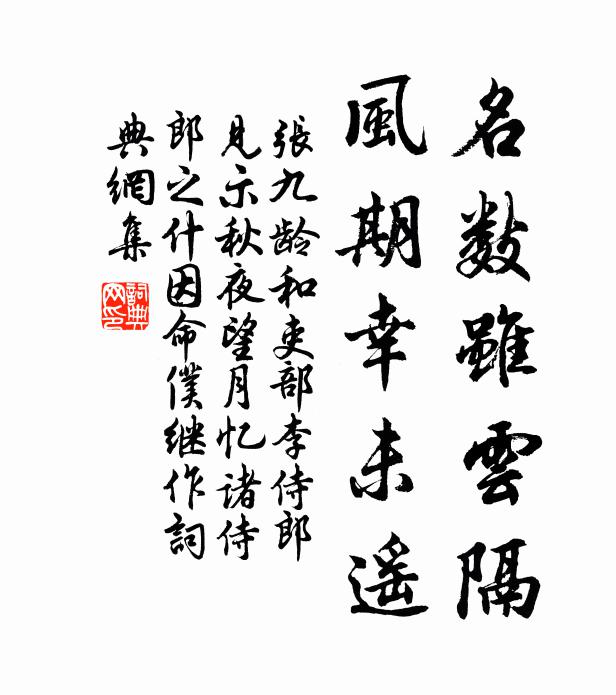 名數雖雲隔
風期幸未遥
張九龄和吏部李侍郎
見示秋夜望月忆諸侍
郎之什因命僕继作詞
典網集
詞典
网印